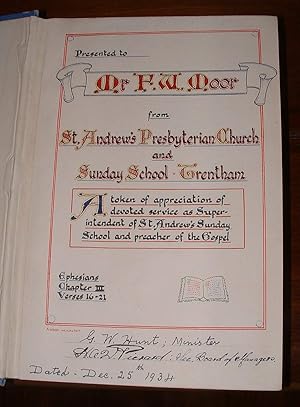 Presented to
Mr F.W. Moor
from
St. Andrew's Presbyterian Church
and
Sunday School - Trentham
A token of appreciation of
devoted service as Super-
intendent of St. Andrew's Sunday
School and preacher of the Gospel
Ephesians
Chapter III
Verses 16-21
G. W. Hunt; Minister
Board of Managers.
Dated - Dec. 25th 1934